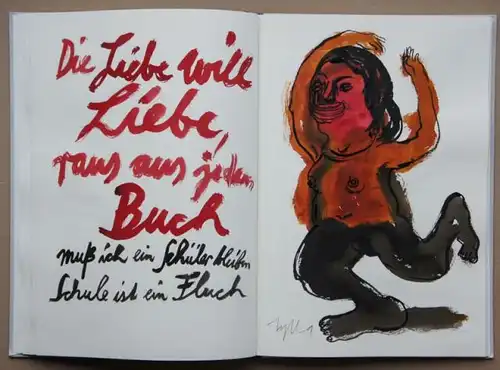 Die Liebe will
Liebe,
raus aus jedem
Buch
muß ich ein Schüler bleiben
Schule ist ein Fluch